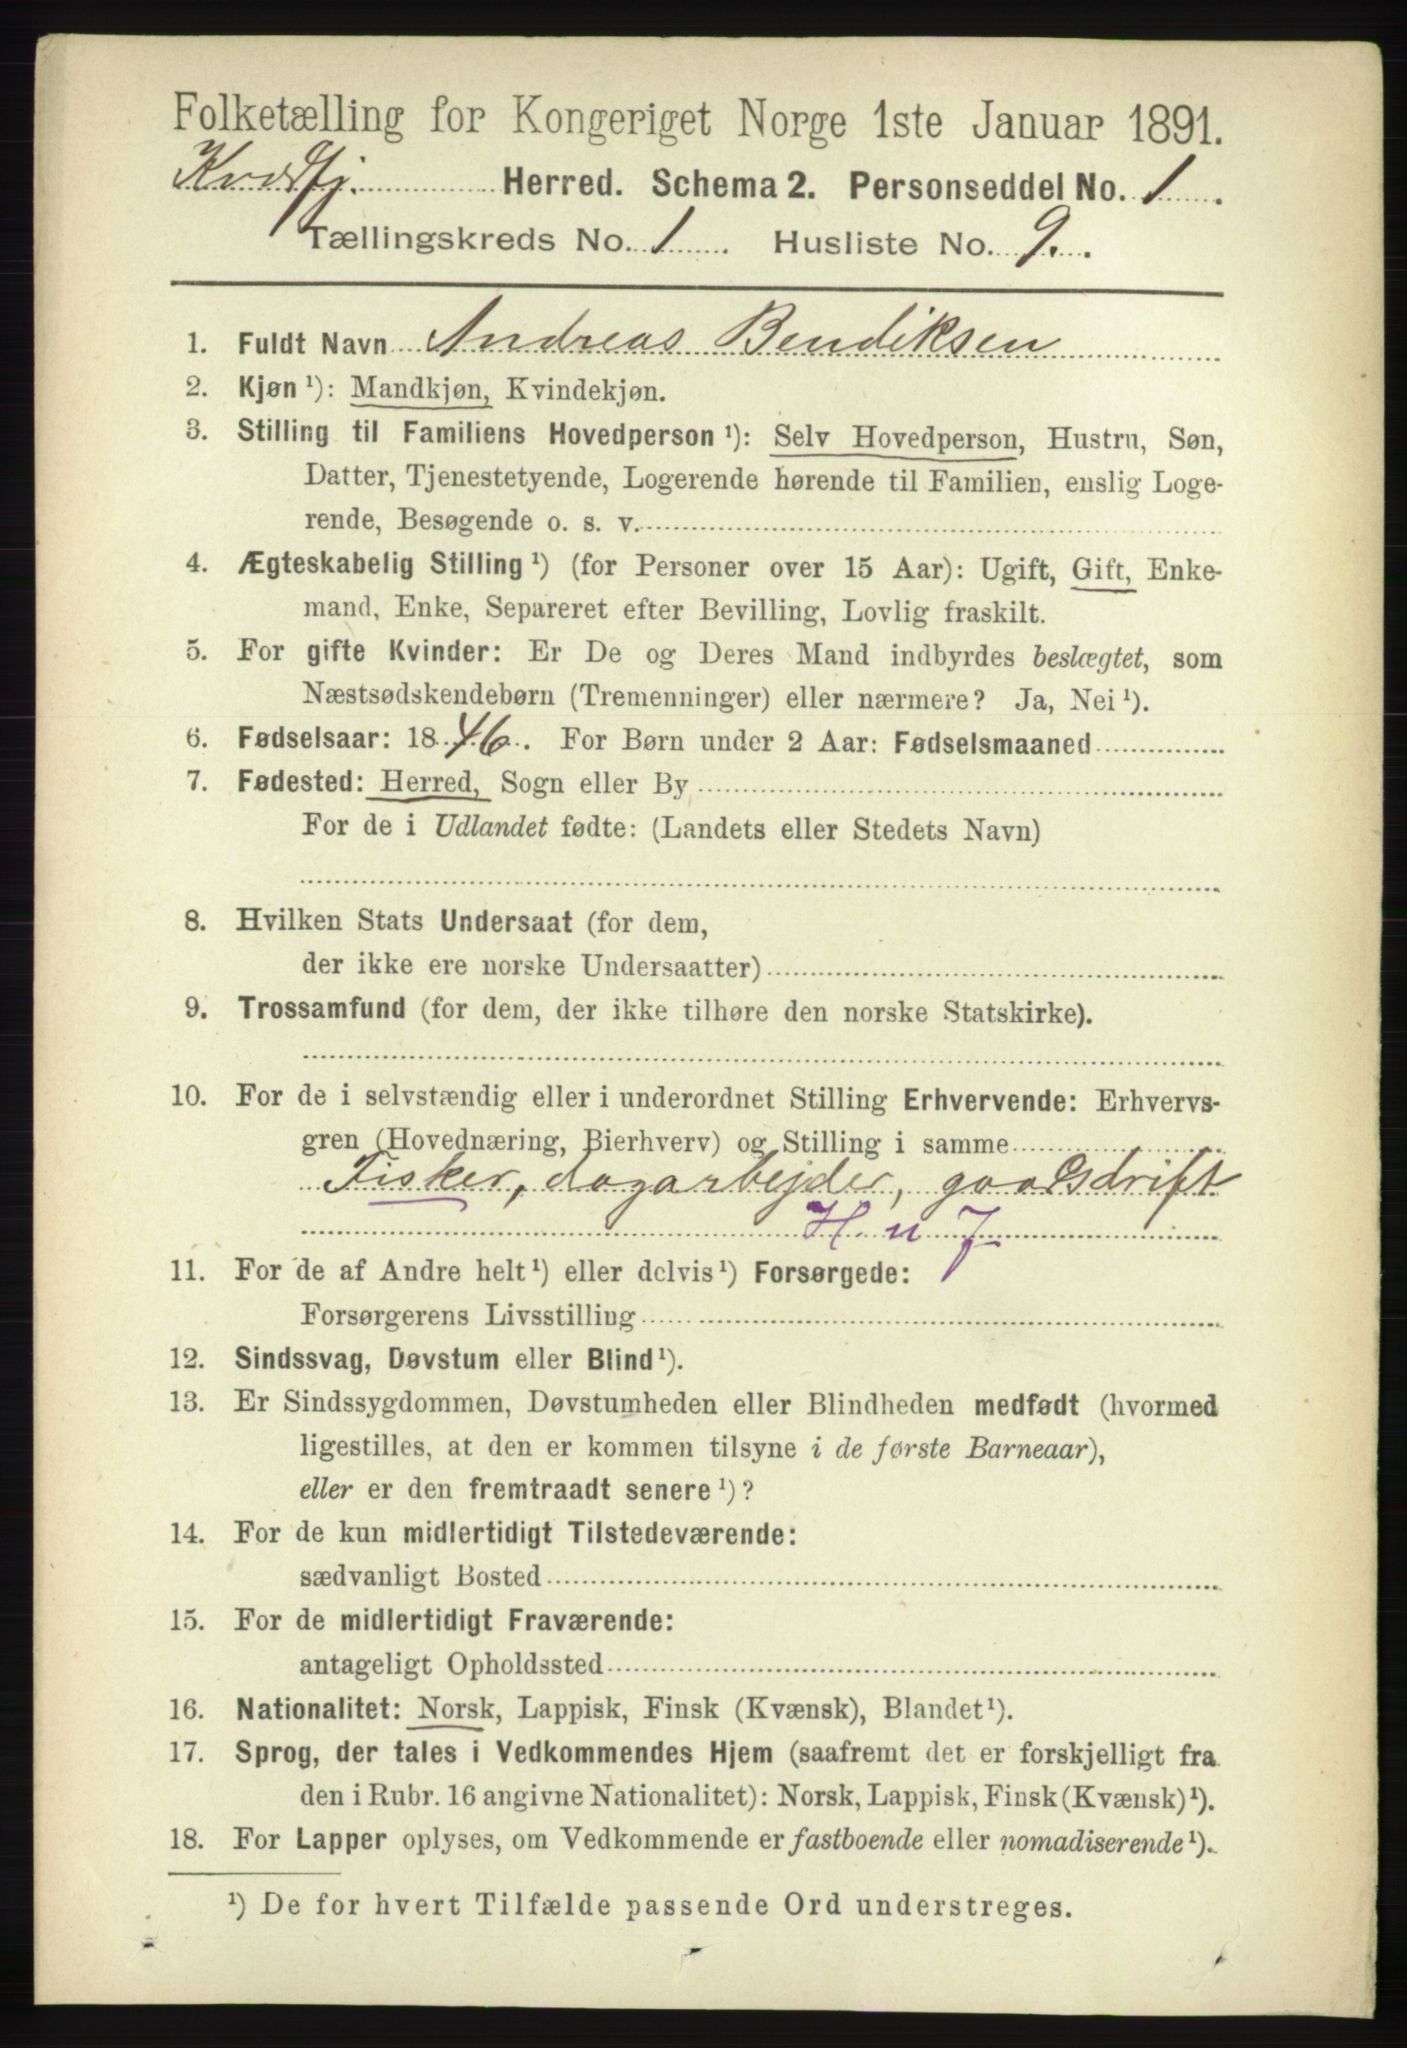 Folketælling for Kongeriget Norge 1ste Januar 1891.
Kvædfj. Herred. Schema 2. Personseddel No. 1.
Tællingskreds No. 1. Husliste No. 9.
1. Fuldt Navn Andreas Bendiksen
2. Kjøn ¹): Mandkjøn, Kvindekjøn.
3. Stilling til Familiens Hovedperson ¹): Selv Hovedperson, Hustru, Søn,
Datter, Tjenestetyende, Logerende hørende til Familien, enslig Loge-
rende, Besøgende o. s. v.
4. Ægteskabelig Stilling ¹) (for Personer over 15 Aar): Ugift, Gift, Enke-
mand, Enke, Separeret efter Bevilling, Lovlig fraskilt.
5. For gifte Kvinder: Er De og Deres Mand indbyrdes beslægtet, som
Næstsødskendebørn (Tremenninger) eller nærmere? Ja, Nei ¹).
6. Fødselsaar: 1846. For Børn under 2 Aar: Fødselsmaaned
7. Fødested: Herred, Sogn eller By
For de i Udlandet fødte: (Landets eller Stedets Navn)
8. Hvilken Stats Undersaat (for dem,
der ikke ere norske Undersaatter)
9. Trossamfund (for dem, der ikke tilhøre den norske Statskirke).
10. For de i selvstændig eller i underordnet Stilling Erhvervende: Erhvervs-
gren (Hovednæring, Bierhverv) og Stilling i samme
Fisker, dagarbejder, gaardsdrift
H. u J
11. For de af Andre helt ¹) eller delvis ¹) Forsørgede:
Forsørgerens Livsstilling
12. Sindssvag, Døvstum eller Blind ¹).
13. Er Sindssygdommen, Døvstumheden eller Blindheden medfødt (hvormed
ligestilles, at den er kommen tilsyne i de første Barneaar),
eller er den fremtraadt senere ¹)?
14. For de kun midlertidigt Tilstedeværende:
sædvanligt Bosted
15. For de midlertidigt Fraværende:
antageligt Opholdssted
16. Nationalitet: Norsk, Lappisk, Finsk (Kvænsk), Blandet ¹).
17. Sprog, der tales i Vedkommendes Hjem (saafremt det er forskjelligt fra
den i Rubr. 16 angivne Nationalitet): Norsk, Lappisk, Finsk (Kvænsk) ¹).
18. For Lapper oplyses, om Vedkommende er fastboende eller nomadiserende ¹).
¹) De for hvert Tilfælde passende Ord understreges.